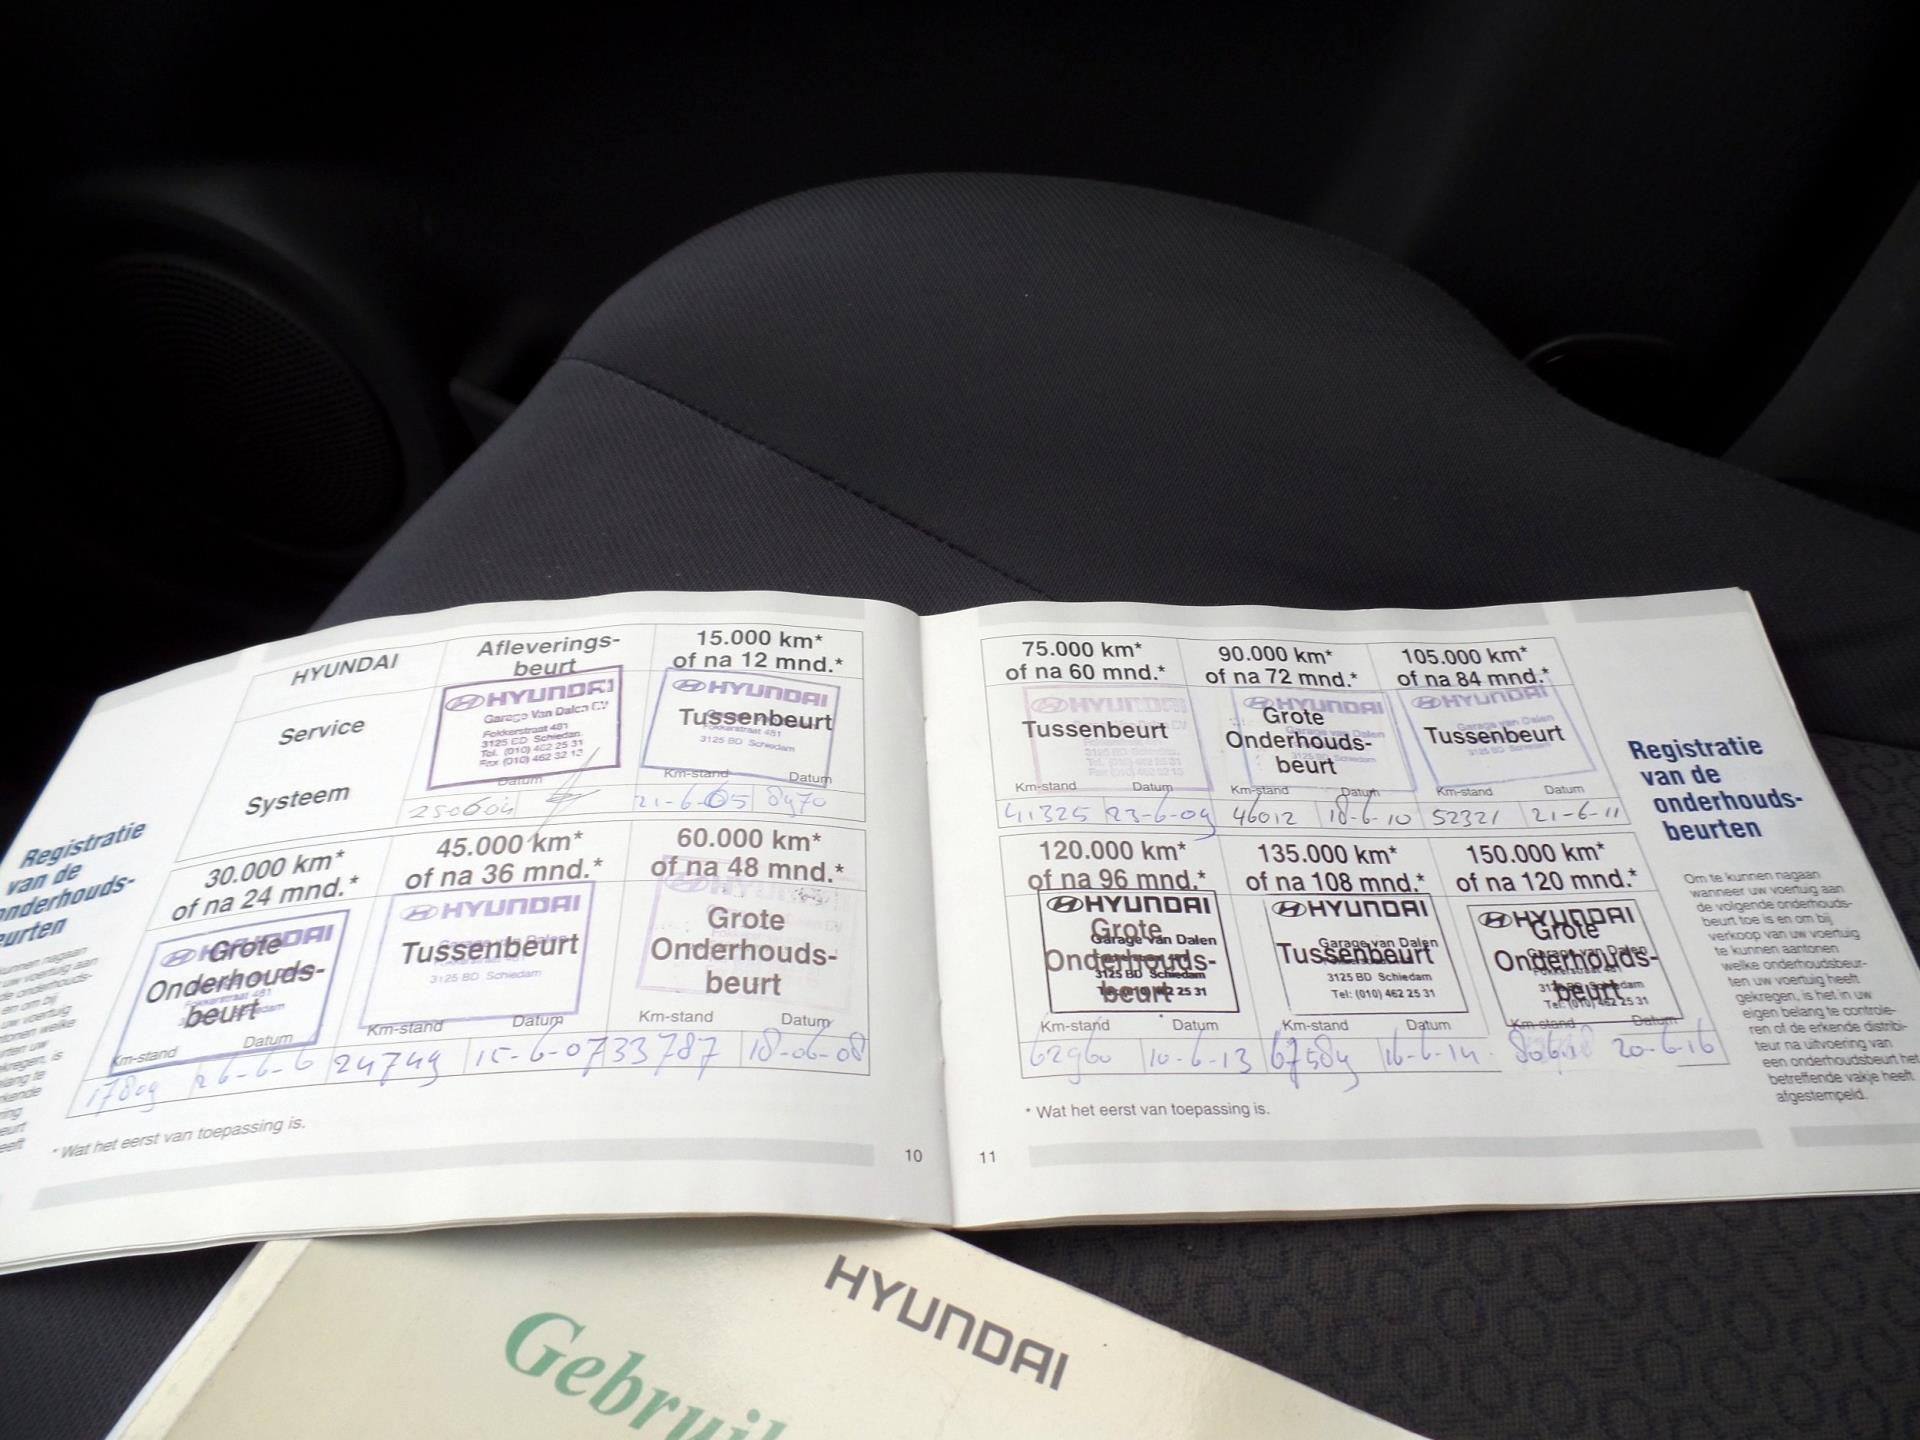 HYUNDAI
Service
Systeem
Afleverings-
beurt
HYUNDAI
Garage Van Dalen CV
Fokkerstraat 481
3125 BD Schiedam
Tel. (010) 462 25 31
Fax (010) 462 32 13
Datum
250604
15.000 km*
of na 12 mnd.*
HYUNDAI
Tussenbeurt
Fokkerstraat 481
3125 BD Schiedam
Km-stand Datum
21-6-05 8970
Registratie
van de
onderhouds-
beurten
30.000 km*
of na 24 mnd.*
HYUNDAI
Grote
Onderhouds-
beurt
Fokkerstraat 481
Km-stand Datum
17809 26-6-6
45.000 km*
of na 36 mnd.*
HYUNDAI
Tussenbeurt
Garage van Dalen
3125 BD Schiedam
Km-stand Datum
24749 15-6-07
60.000 km*
of na 48 mnd.*
HYUNDAI
Grote
Onderhouds-
beurt
Km-stand Datum
33787 18-06-08
* Wat het eerst van toepassing is.
10
75.000 km*
of na 60 mnd.*
HYUNDAI
Tussenbeurt
Garage Van Dalen CV
3125 BD Schiedam
Tel. (010) 462 25 31
Fax (010) 462 32 13
Km-stand Datum
41325 23-6-09
90.000 km*
of na 72 mnd.*
HYUNDAI
Grote
Onderhouds-
beurt
Garage van Dalen
3125 BD Schiedam
Km-stand Datum
46012 18-6-10
105.000 km*
of na 84 mnd.*
HYUNDAI
Garage van Dalen
Tussenbeurt
3125 BD Schiedam
Km-stand Datum
52321 21-6-11
120.000 km*
of na 96 mnd.*
HYUNDAI
Grote
Garage van Dalen
Onderhouds-
3125 BD Schiedam
beurt
Tel: (010) 462 25 31
Km-stand Datum
62960 10-6-13
135.000 km*
of na 108 mnd.*
HYUNDAI
Garage van Dalen
Tussenbeurt
3125 BD Schiedam
Tel: (010) 462 25 31
Km-stand Datum
67589 16-6-14
150.000 km*
of na 120 mnd.*
HYUNDAI
Grote
Garage van Dalen
Onderhouds-
Fokkerstraat 481
3125 BD Schiedam
beurt
Tel: (010) 462 25 31
Km-stand Datum
20-6-16
* Wat het eerst van toepassing is.
11
Registratie
van de
onderhouds-
beurten
Om te kunnen nagaan
wanneer uw voertuig aan
de volgende onderhouds-
beurt toe is en om bij
verkoop van uw voertuig
te kunnen aantonen
welke onderhoudsbeur-
ten uw voertuig heeft
gekregen, is het in uw
eigen belang te controle-
ren of de erkende distribu-
teur na uitvoering van
een onderhoudsbeurt het
betreffende vakje heeft
afgestempeld.
HYUNDAI